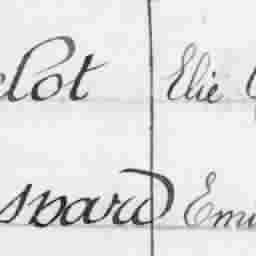 elot Elie
spard Emi